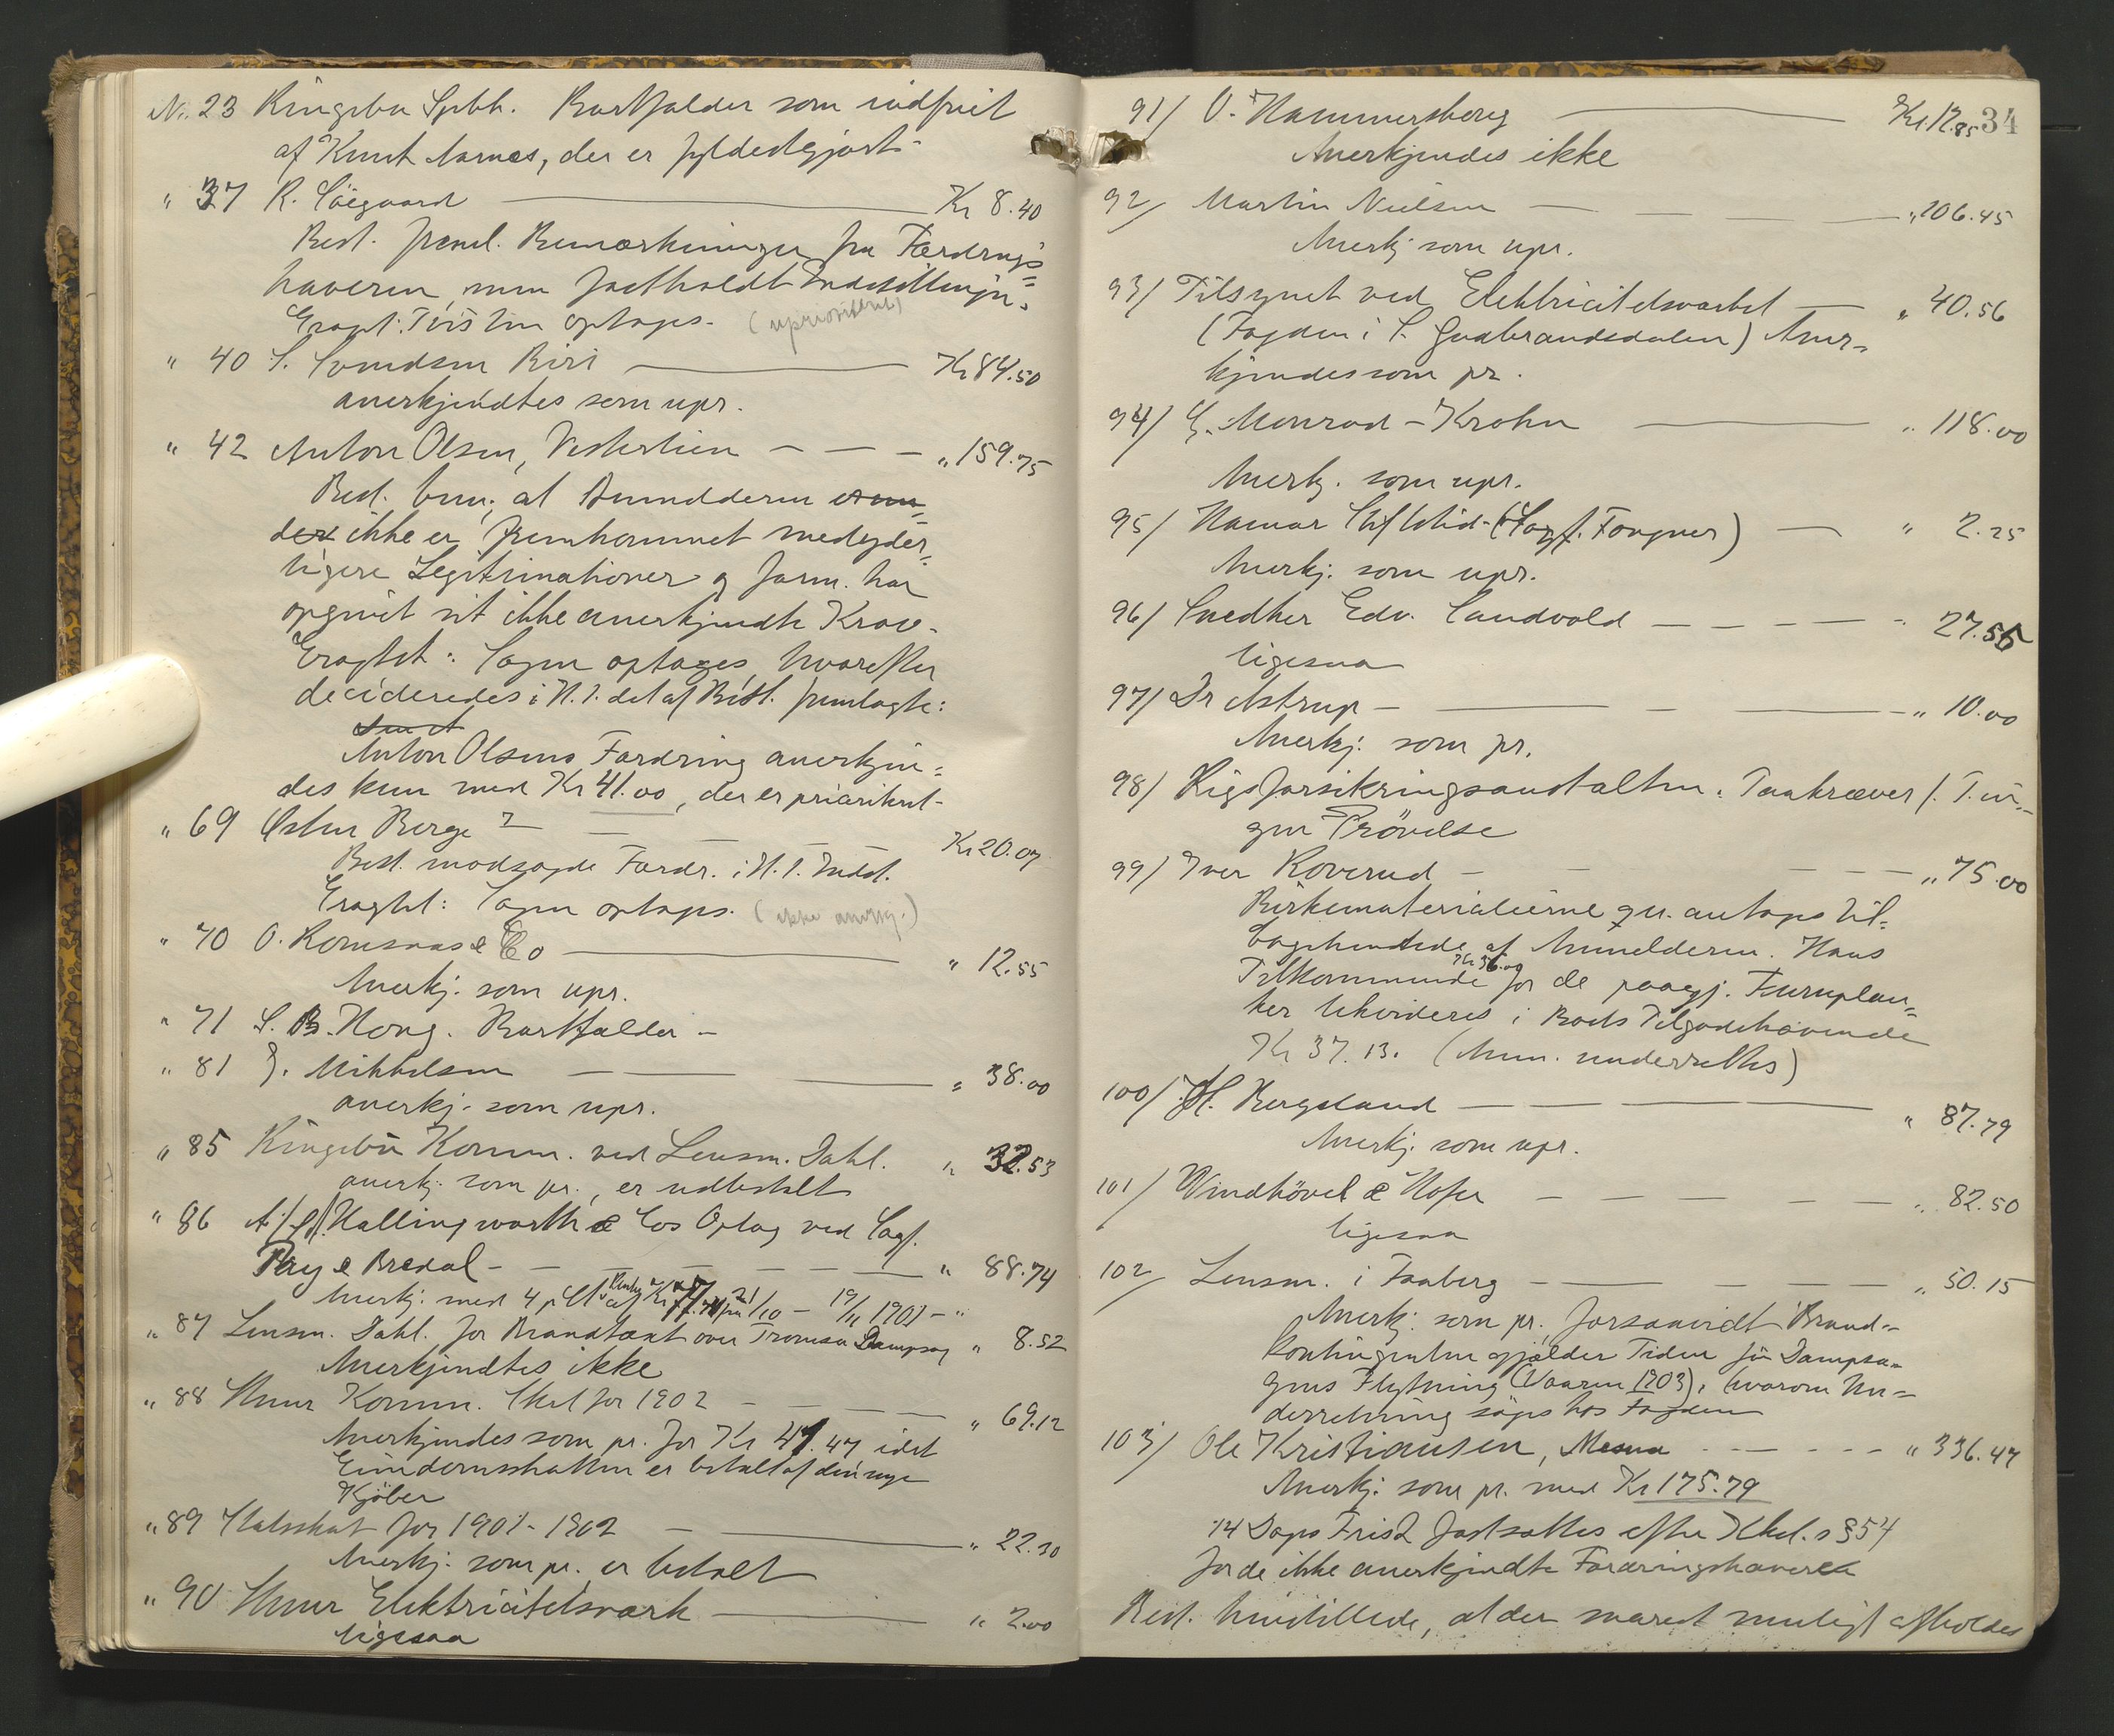 No. 23 Ringebu Spbk. Bortfalder som indfriet
af Knut Aarnes, der er fyldestgjort.
" 37 R. Söegaard Kr 8.40
Best. freml. Bemærkninger fra Fordrings=
haveren, men fastholdt Indstillingen.
Eragt: Tvisten optages. (uprioritert)
" 40 S. Svendsen Biri Kr 84.50
anerkjendtes som upr.
" 42 Anton Olsen, Vesterlien " 159.75
Best. bem. at Anmelderen
ikke er fremkommet med yder=
ligere Legitimationer og form. har
opgivet sit ikke anerkjendte Krav.
Eragtet: Sagen optages, hvorefter
decideredes i H. t. det af Best. fremlagte:
Anton Olsens Fordring anerkjen=
des kun med Kr 41.00, der er prioritert.
" 69 Østen Berge Kr 20.07
Best. modsagde Fordr. i H. t. Indst.
Eragtet: Sagen optages. (ikke anerkj.)
" 70 O. Romsaas & Co " 12.55
Anerkj. som upr.
" 71 S. B. Hong. Bortfalder -
" 81 J. Mikkelsen " 38.00
anerkj. som upr.
" 85 Ringebu Komm. ved Lensm. Dahl. " 32.53
anerkj. som pr., er udbetalt
" 86 A/S Hallingworth & Cos Oplag ved Sagf.
Bry & Bredal - " 88.74
Anerkj. med 4 pCt af Kr 21/10 - 19/11 1901 - "
" 87 Lensm. Dahl. for Brandtaxt over Tromsa Dampsag " 8.52
Anerkjendtes ikke
" 88 Komm. Skat for 1902 " 69.12
Anerkjendes som pr. for Kr 47.47 idet
Eiendomsskatten er betalt af den nye
Kjöber
" 89 Statsskat for 1901-1902 " 22.30
Anerkj. som pr. er betalt
" 90 Elektricitetsværk " 2.00
ligesaa
34
91/ O. Hammersberg Kr. 12.85
Anerkjendes ikke
92/ Martin Nielsen " 106.45
Anerkj som upr.
93/ Tilsynet ved Elektricitetsværket " 40.56
(Fogden i S. Gudbrandsdalen) Aner=
kjendes som pr.
94/ G. Monrad-Krohn " 118.00
Anerkj. som upr.
95/ Hamar Stiftstid. (Sagf. Fougner) " 2.25
Anerkj. som upr.
96/ Snedker Edv. Sandvold " 27.55
ligesaa
97/ Dr Astrup " 10.00
Anerkj. som pr.
98/ Rigsforsikringsanstalten. Paakræver f. T. in=
gen Prövelse
99/ Iver Roverud " 75.00
Birkematerialierne qu. antages til=
bagehentede af Anmelderen. Hans
Tilkommende Kr 36.00 for de paagj. Furuplan=
ker likvideres i Boets Tilgodehavende
Kr 37.13. (Anm. underrettes)
100/ H. Bergsland " 87.79
Anerkj. som upr.
101/ Windhövel & Hofer " 82.50
ligesaa
102/ Lensm. i Faaberg " 50.15
Anerkj. som pr. forsaavidt Brand=
kontingenten gjælder Tiden för Dampsa=
gens Flytning (Vaaren 1903), hvorom Un=
derretning søges hos Fogden
103/ Ole Kristiansen, Mesna " 336.47
Anerkj. som pr. med Kr 175.79
14 Dages Frist fastsattes efter Kkl.s § 54
for de ikke anerkjendte Fordringshavere
Best. henstillede, at der snarest muligt afholdes